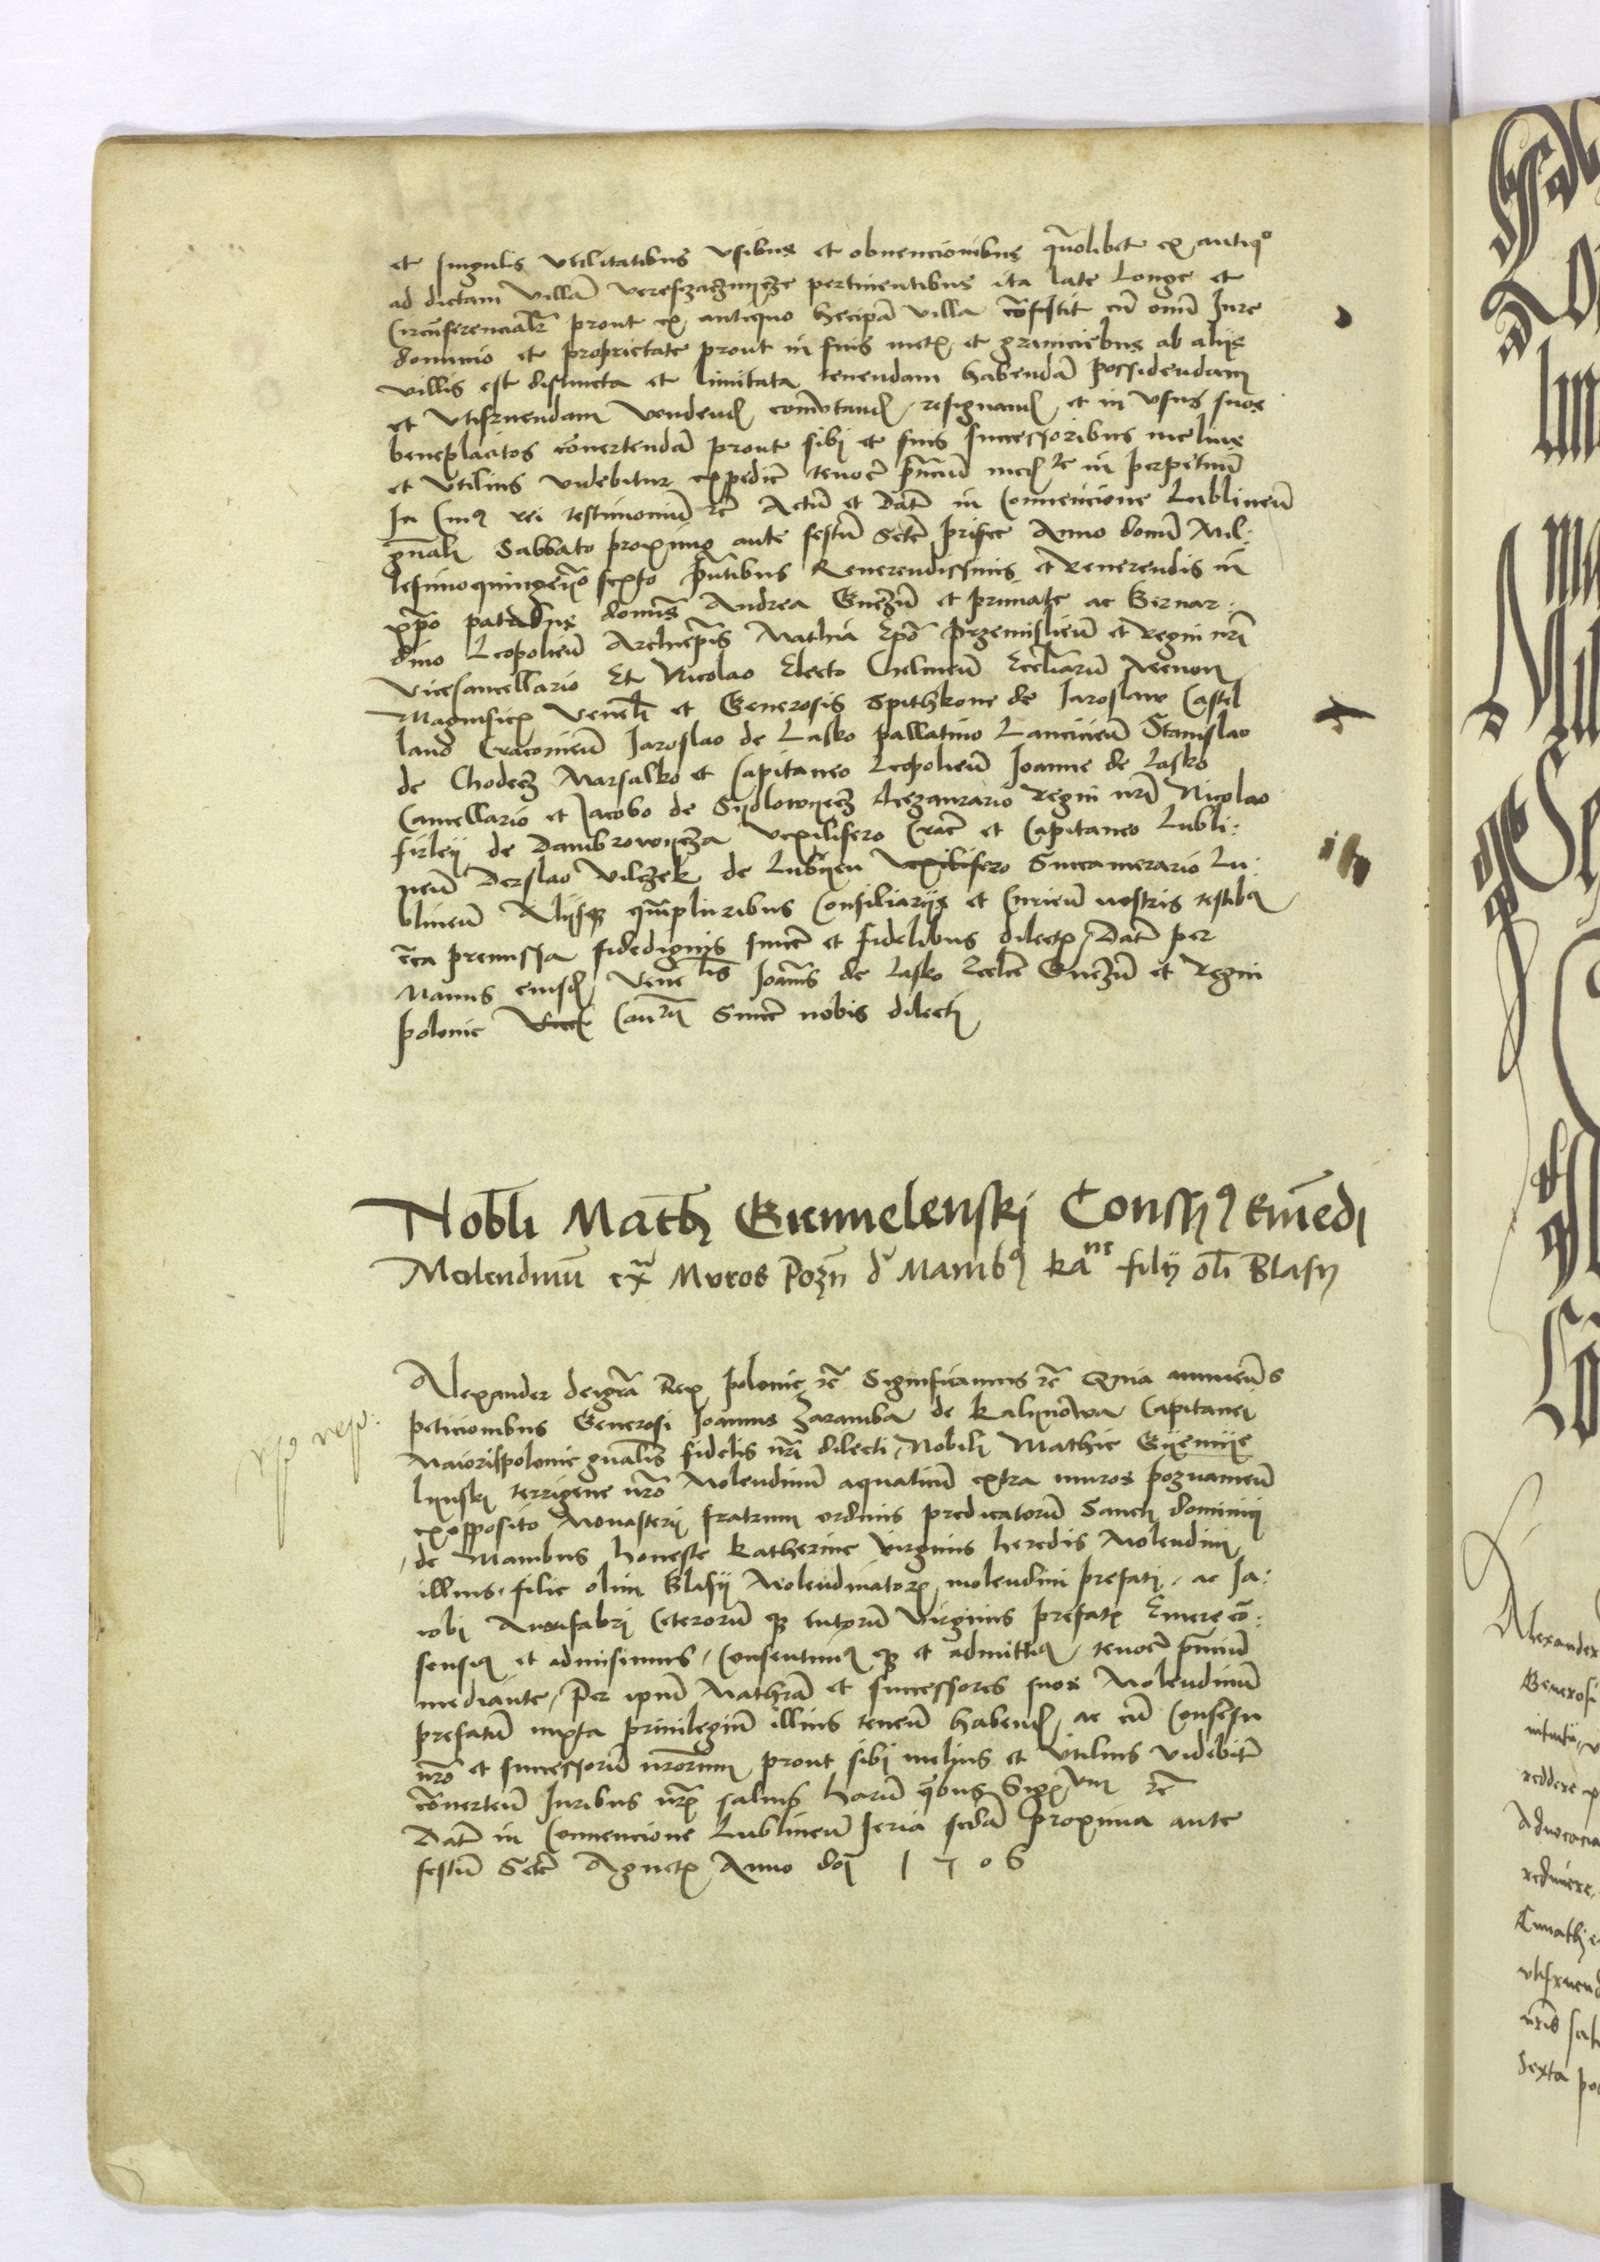 et singulis vtilitatibus vsibus et obuencionibus quolibet ex antiquo
ad dictam villā pertinentibus ita late longe et
Circūferencialr prout ex antiquo hec ipā villa cōsistit cū omī Iure
dominio et proprietate prout in suis metꝭ et graniciebus ab alijs
villis est distincta et limitata tenendam habendā possidendam
et vtifruendam vendendꝭ comutandꝭ resignandꝭ et in vsus suos
beneplacitos cōuertendā prout sibi et suis successoribus melius
et vtilius videbitur expedire tenore pñciū medꝭ in perpetuū
In Cuiꝰ rei testimoniū rc̄ Actū et Datꝭ in Conuencione Lublineñ
gñali Sabbato proximo ante festū Scte prisce Anno domī Mil:
lesimoquingeño sexto p̄ntibus Reuerendissimis et Reuerendis in
xpō patribus domīs Andrea Gnezñ et primate ac Bernar:
dino Leopolieñ Archiep̄is Mathia Ep̄o Przemislieñ et Regni nr̄i
Vicecancellario Et Nicolao Electo Chelmeñ Eccl̄iarū Necnon
Magnificꝭ Venel̄i et Generosis Spithkone de Iaroslaw Castel
lano Cracouieñ Iaroslao de Lasko pallatino Lancicieñ Stanislao
de Chodecz Marsalko et Capitaneo Leopolieñ Joanne de Lasko
Cancellario et Jacobo de Sijdlowyecz thezaurario Regni nr̄i Nicolao
firleij de Dambrowycza vexilifero Crac̄ et Capitaneo Lubli:
neñ Derslao Vilczek de Lubyen vexilifero Succamerario Lu:
blineñ Alijsqꝫ quāpluribus Consiliarijs et Curieñ nostris testibꝰ
circa premissa fidedignis sincē et fidelibus dilectꝭ Datꝭ per
Manus eiusdꝭ Venelis Joānis de Lasko Eccl̄ie Gnezñ et Regni
polonie Cancꝭ Sincē nobis dilecti
Nobl̄i Math Giemelenski Conssꝰ Emēdi
Molendinū exͣ Muros Pozñ dͤ Manibꝰ kane filij olī Blasij
Alexander deigrā Rex polonie rc̄ Significamus rc̄ Quia annueñs
peticionibus Generosi Joannis Zaramba de kalynowa Capitanei
Maiorispolonie gñalis fidelis nr̄i dilecti Nobili Mathie Gyemye
lynski terrigene nr̄o Molendinū aquaticū extra muros poznanieñ
exopposito Monasterij fratrum ordinis predicatorū Sancti dominici
de Manibus honeste Katherine virginis heredis Molendini
illius filie olim Blasij Molendinatorꝭ molendini prefati ac Ja:
cobi Aurifabri Ceterorū qꝫ tutorū Virginis prefate Emere cō:
sensiꝰ et admisimus Consentimꝰ qꝫ et admittimꝰ tenore pñciū
mediante Per ipm̄ Mathiā et successores suos Molendinū
prefatū iuxta priuilegiū illius teneñ habendꝭ ac cū Consēsu
nr̄o et successorū nr̄orum prout sibi melius et vtilius videbitꝭ
cōuerteñ Iuribus nr̄ꝭ saluis harū quibus Sigꝭ rc̄
Datꝭ in Conuencione Lublineñ feria secda proxima ante
festū Scte Agnetꝭ Anno doī 1506